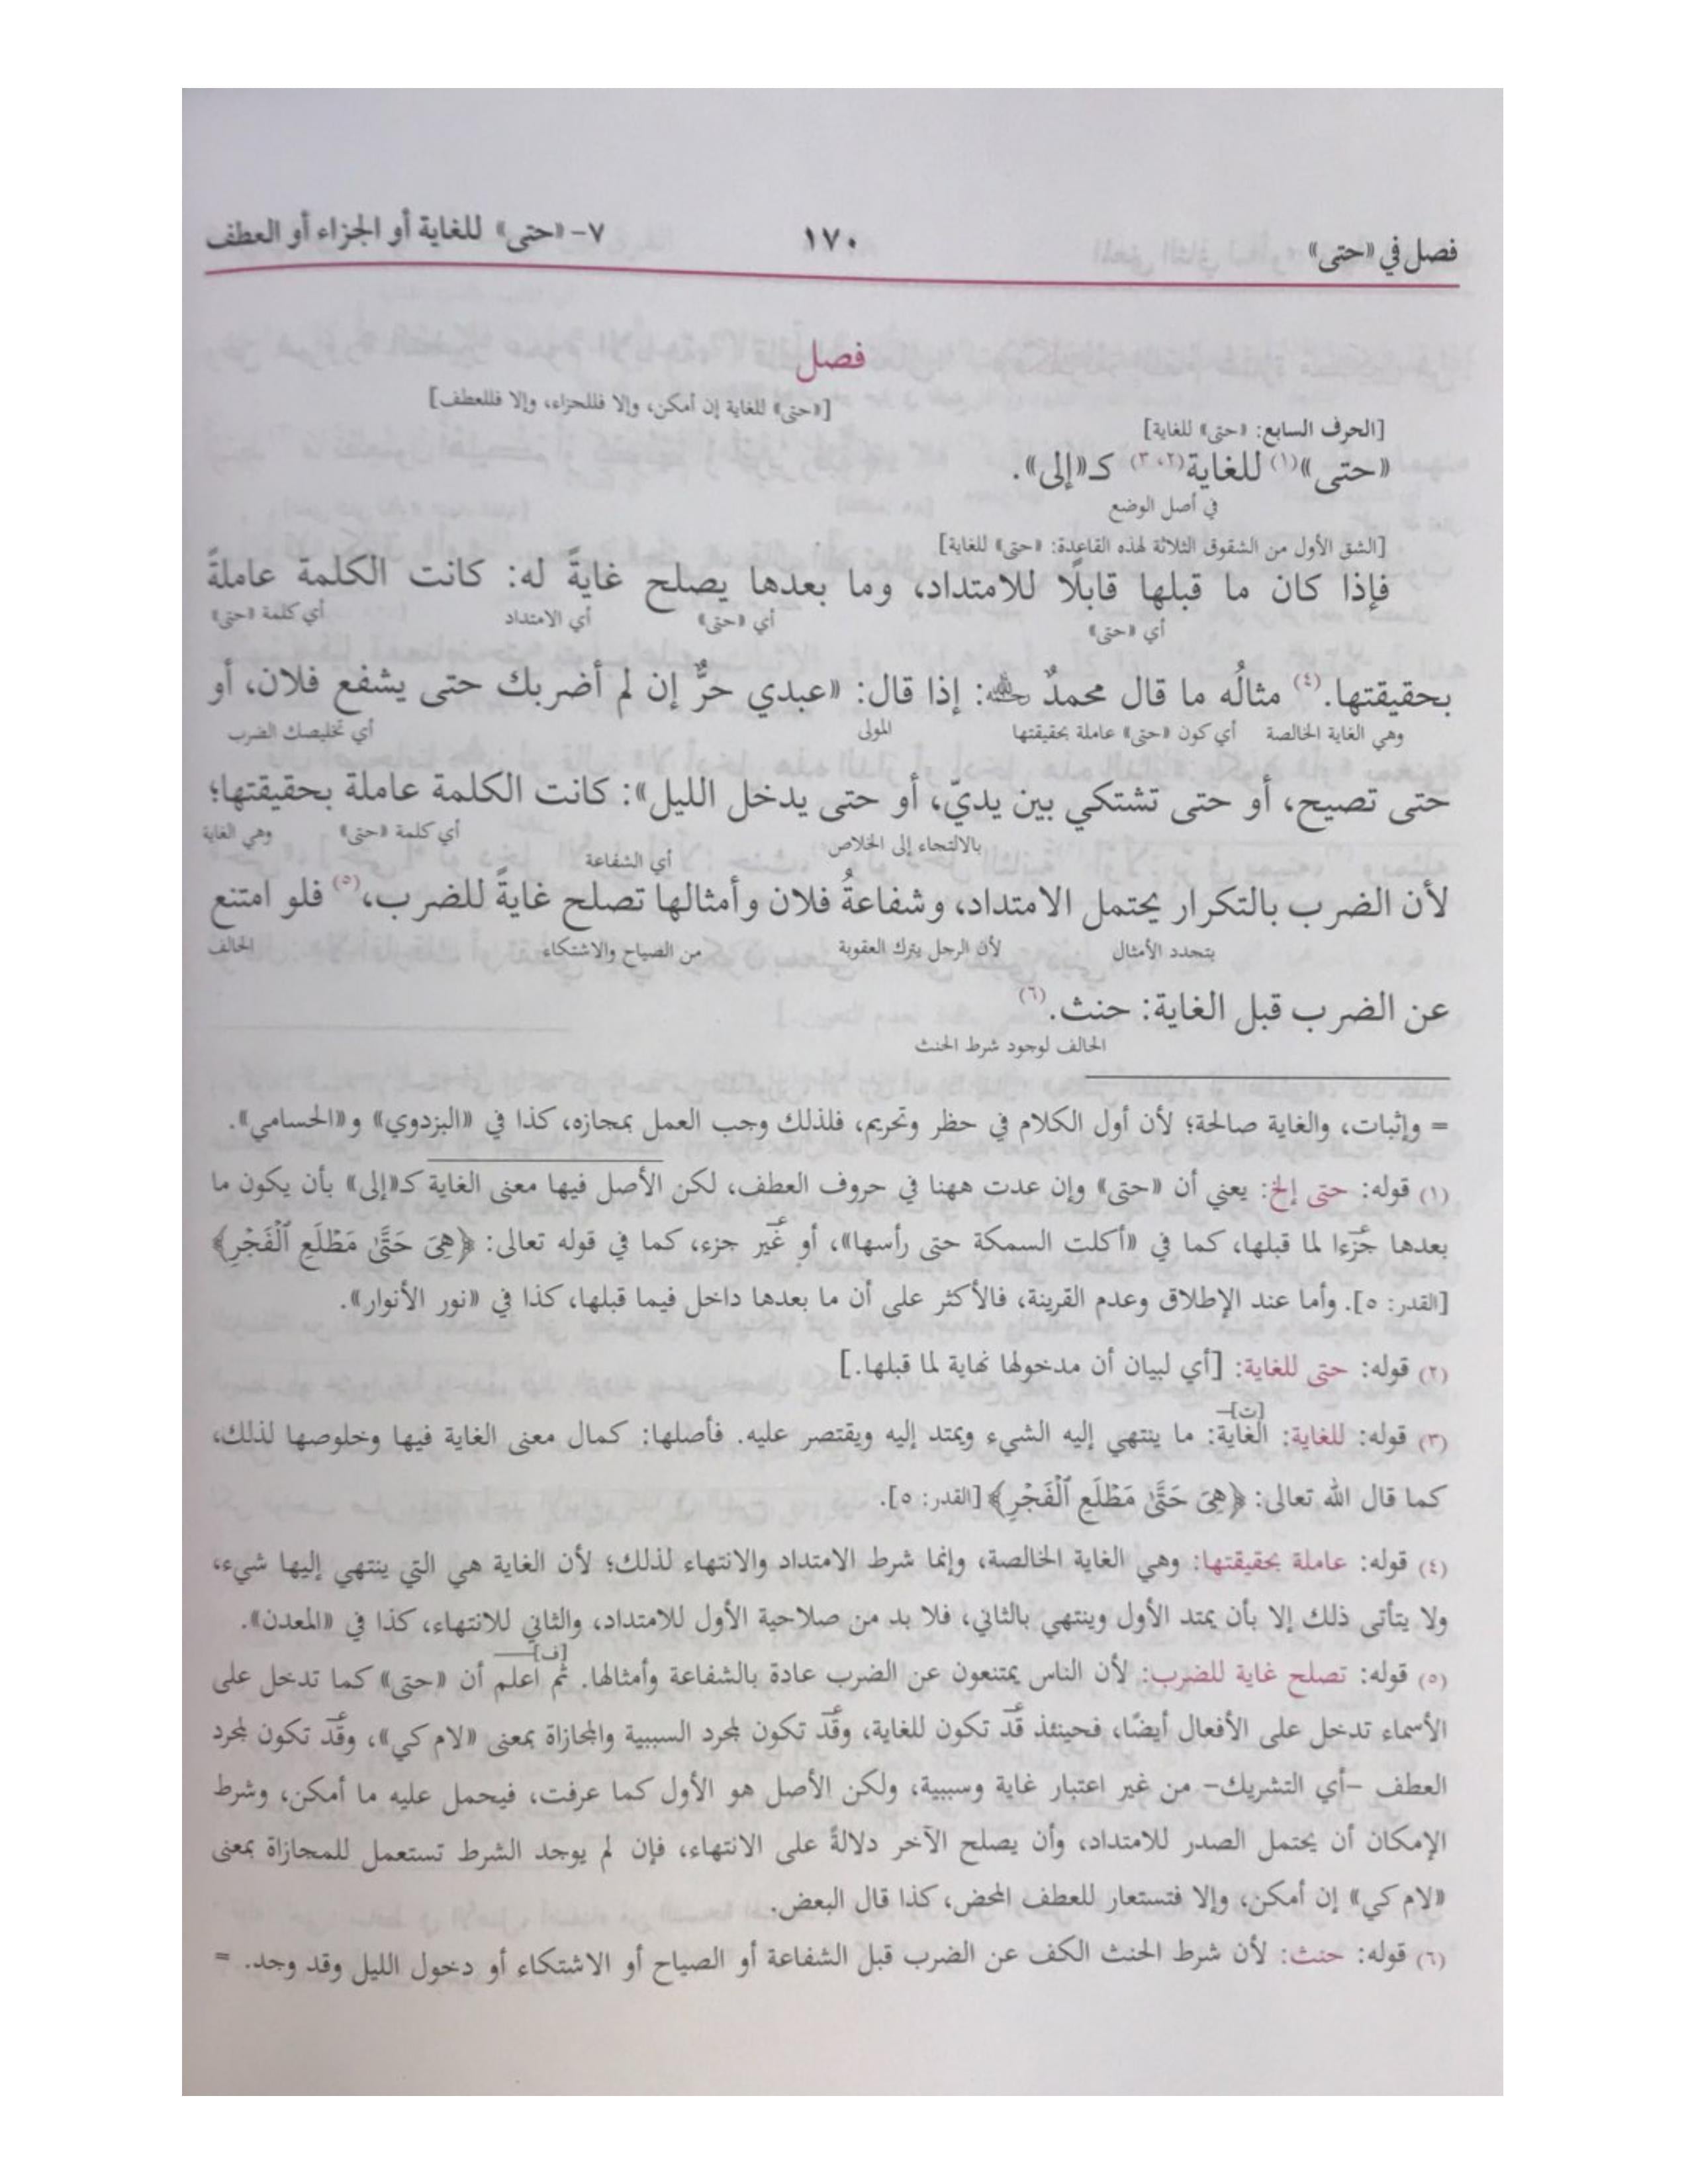 فصل في «حتى» ١٧٠ ٧- «حتى» للغاية أو الجزاء أو العطف
فصل
[«حتى» للغاية إن أمكن، وإلا فللجزاء، وإلا فللعطف]
[الحرف السابع: «حتى» للغاية]
«حتى»(١) للغاية(٢، ٣) كـ«إلى».
في أصل الوضع
[الشق الأول من الشقوق الثلاثة لهذه القاعدة: «حتى» للغاية]
فإذا كان ما قبلها قابلًا للامتداد، وما بعدها يصلح غايةً له: كانت الكلمة عاملةً
أي «حتى» أي «حتى» أي الامتداد أي كلمة «حتى»
بحقيقتها.(٤) مثالُه ما قال محمدٌ رحمه الله: إذا قال: «عبدي حرٌّ إن لم أضربك حتى يشفع فلان، أو
وهي الغاية الخالصة أي كون «حتى» عاملة بحقيقتها المولى أي تخليصك الضرب
حتى تصيح، أو حتى تشتكي بين يديّ، أو حتى يدخل الليل»: كانت الكلمة عاملة بحقيقتها؛
بالالتجاء إلى الخلاص أي كلمة «حتى» وهي الغاية
أي الشفاعة
لأن الضرب بالتكرار يحتمل الامتداد، وشفاعةُ فلان وأمثالها تصلح غايةً للضرب،(٥) فلو امتنع
بتجدد الأمثال لأن الرجل يترك العقوبة من الصياح والاشتكاء الحالف
عن الضرب قبل الغاية: حنث.(٦)
الحالف لوجود شرط الحنث
= وإثبات، والغاية صالحة؛ لأن أول الكلام في حظر وتحريم، فلذلك وجب العمل بمجازه، كذا في «البزدوي» و«الحسامي».
(١) قوله: حتى إلخ: يعني أن «حتى» وإن عدت ههنا في حروف العطف، لكن الأصل فيها معنى الغاية كـ«إلى» بأن يكون ما
بعدها جزءا لما قبلها، كما في «أكلت السمكة حتى رأسها»، أو غير جزء، كما في قوله تعالى: ﴿هِىَ حَتَّىٰ مَطْلَعِ ٱلْفَجْرِ﴾
[القدر: ٥]. وأما عند الإطلاق وعدم القرينة، فالأكثر على أن ما بعدها داخل فيما قبلها، كذا في «نور الأنوار».
(٢) قوله: حتى للغاية: [أي لبيان أن مدخولها نهاية لما قبلها.]
[ت]
(٣) قوله: للغاية: الغاية: ما ينتهي إليه الشيء ويمتد إليه ويقتصر عليه. فأصلها: كمال معنى الغاية فيها وخلوصها لذلك،
كما قال الله تعالى: ﴿هِىَ حَتَّىٰ مَطْلَعِ ٱلْفَجْرِ﴾ [القدر: ٥].
(٤) قوله: عاملة بحقيقتها: وهي الغاية الخالصة، وإنما شرط الامتداد والانتهاء لذلك؛ لأن الغاية هي التي ينتهي إليها شيء،
ولا يتأتى ذلك إلا بأن يمتد الأول وينتهي بالثاني، فلا بد من صلاحية الأول للامتداد، والثاني للانتهاء، كذا في «المعدن».
[ف]
(٥) قوله: تصلح غاية للضرب: لأن الناس يمتنعون عن الضرب عادة بالشفاعة وأمثالها. ثم اعلم أن «حتى» كما تدخل على
الأسماء تدخل على الأفعال أيضًا، فحينئذ قد تكون للغاية، وقد تكون لمجرد السببية والمجازاة بمعنى «لام كي»، وقد تكون لمجرد
العطف -أي التشريك- من غير اعتبار غاية وسببية، ولكن الأصل هو الأول كما عرفت، فيحمل عليه ما أمكن، وشرط
الإمكان أن يحتمل الصدر للامتداد، وأن يصلح الآخر دلالةً على الانتهاء، فإن لم يوجد الشرط تستعمل للمجازاة بمعنى
«لام كي» إن أمكن، وإلا فتستعار للعطف المحض، كذا قال البعض.
(٦) قوله: حنث: لأن شرط الحنث الكف عن الضرب قبل الشفاعة أو الصياح أو الاشتكاء أو دخول الليل وقد وجد. =